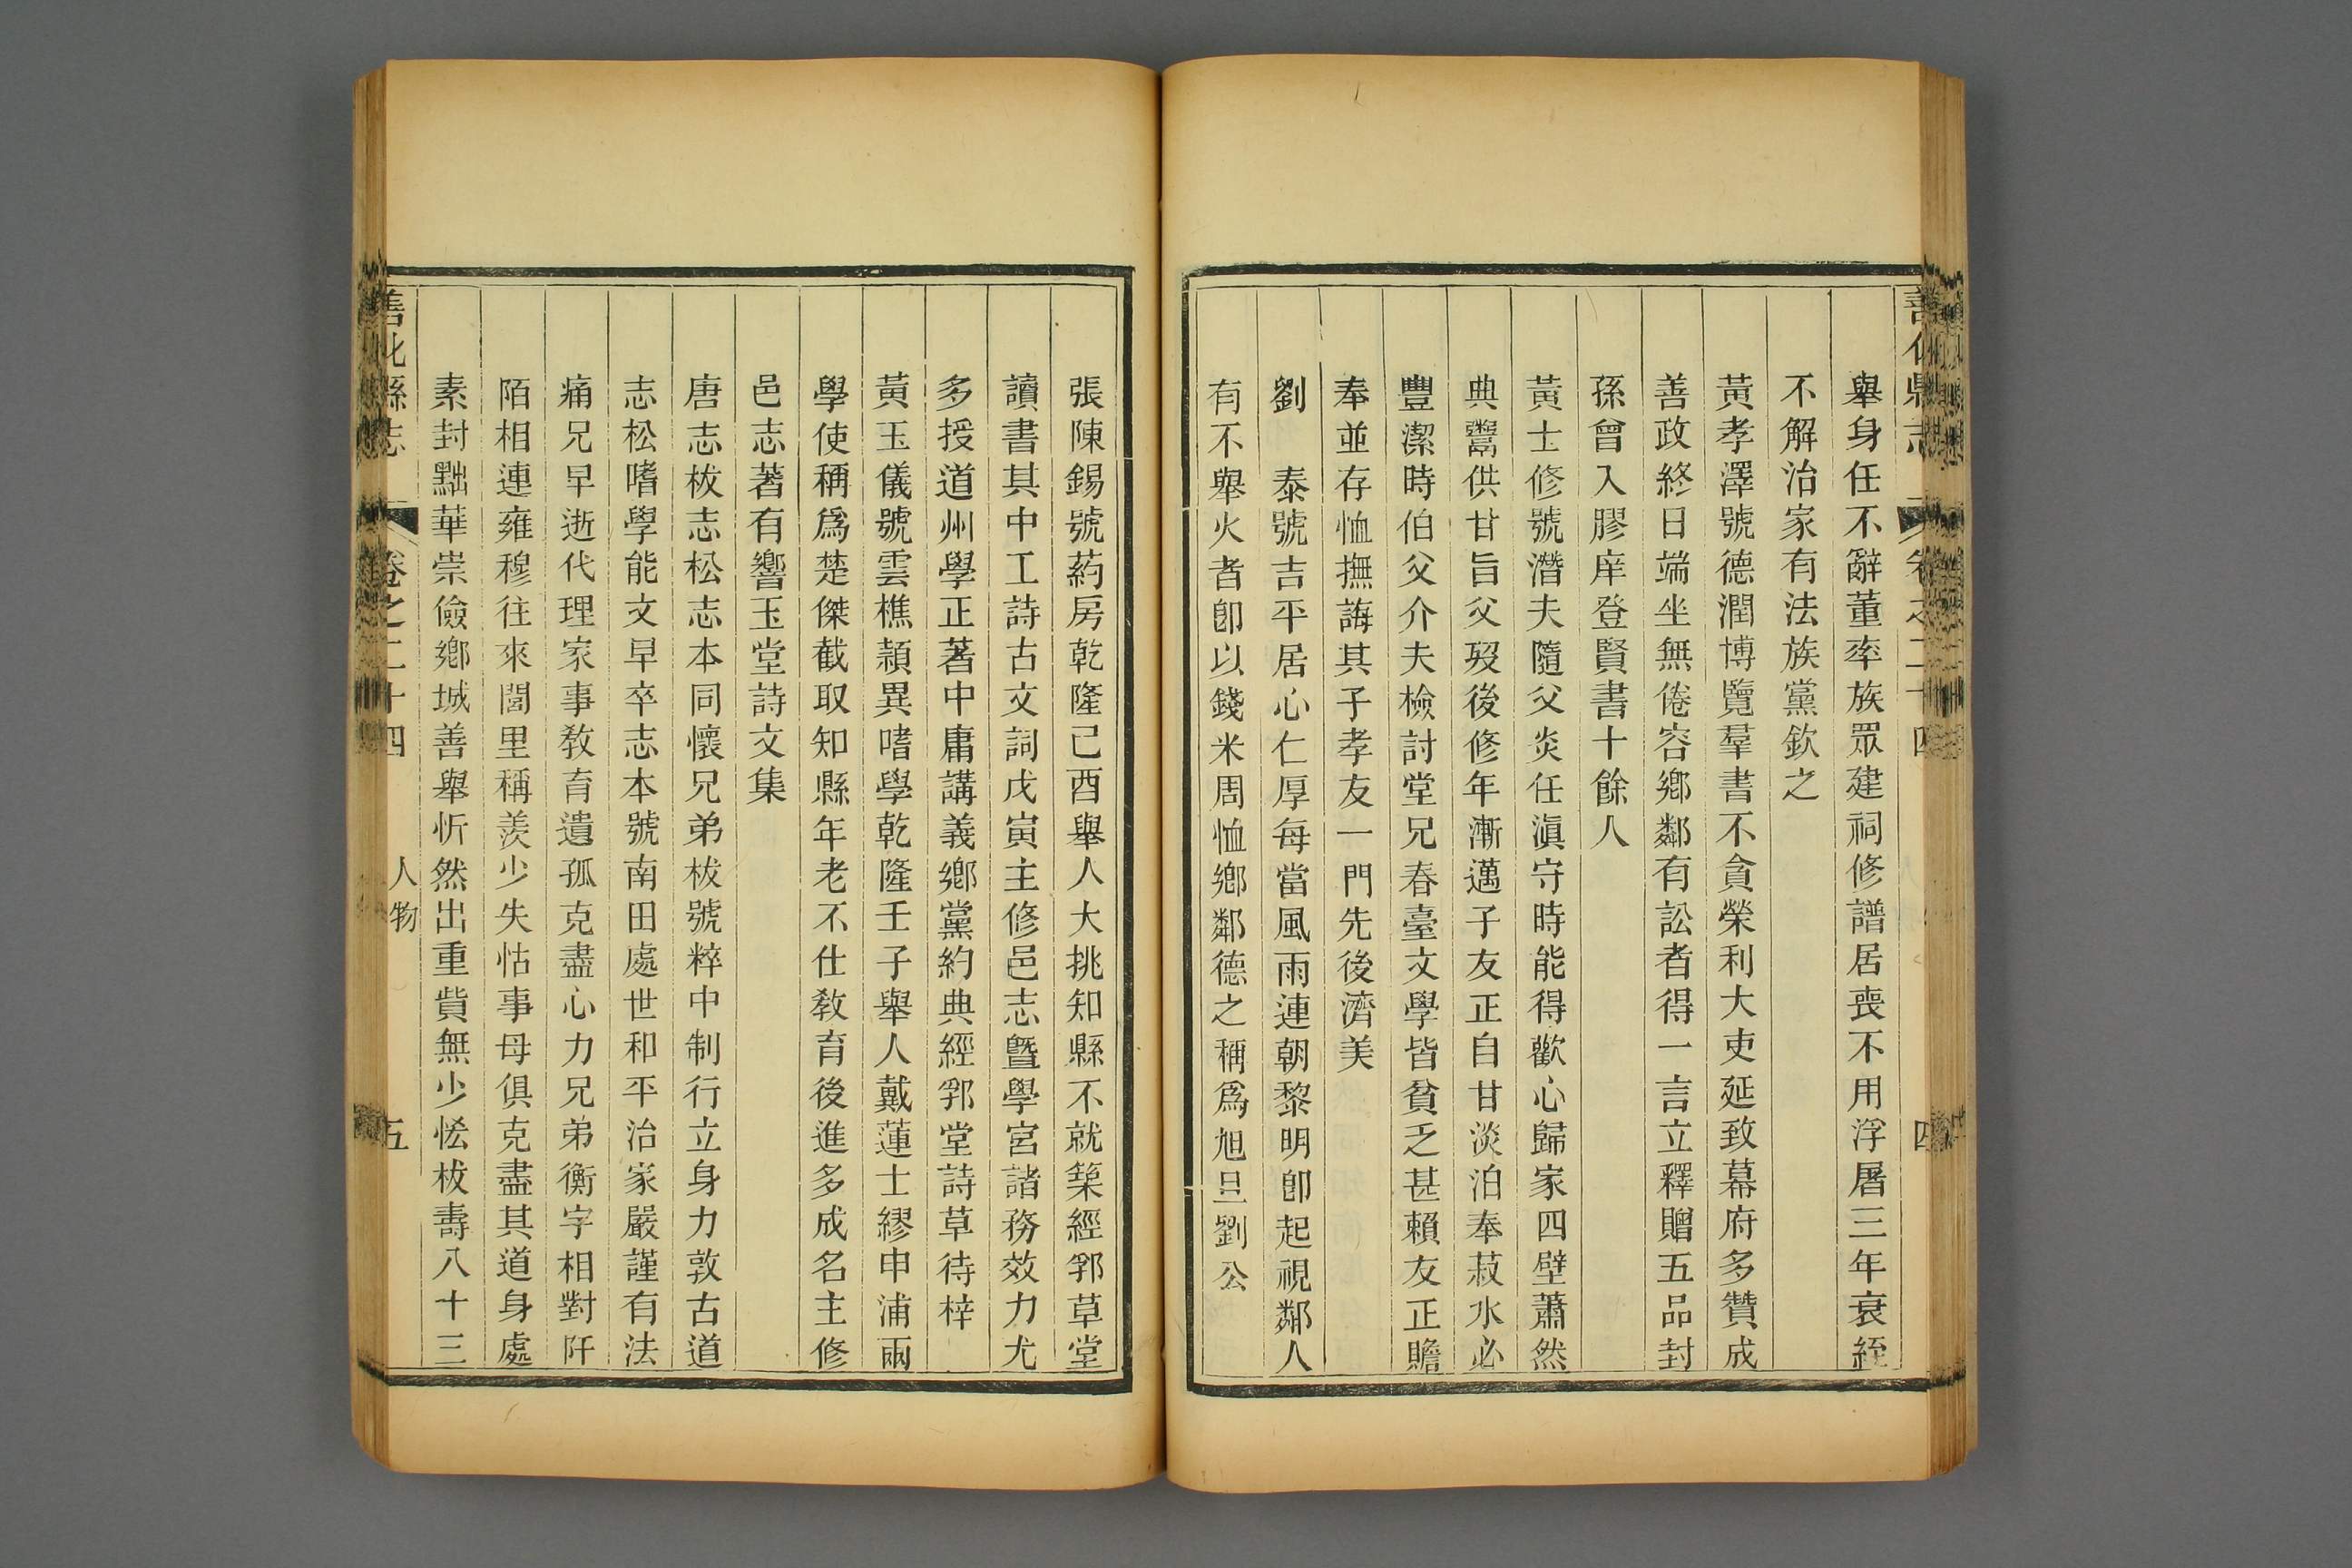 善化縣志 卷之二十四 四
舉身任不辭董率族眾建祠修譜居喪不用浮屠三年衰絰
不解治家有法族黨欽之
黃孝澤號德潤博覽羣書不貪榮利大吏延致幕府多贊成
善政終日端坐無倦容鄉鄰有訟者得一言立釋贈五品封
孫曾入膠庠登賢書十餘人
黃士修號潛夫隨父炎任滇守時能得歡心歸家四壁蕭然
典鬻供甘旨父歿後修年漸邁子友正自甘淡泊奉菽水必
豐潔時伯父介夫檢討堂兄春臺文學皆貧乏甚賴友正贍
奉並存恤撫誨其子孝友一門先後濟美
劉　泰號吉平居心仁厚每當風雨連朝黎明卽起視鄰人
有不舉火者卽以錢米周恤鄉鄰德之稱爲旭旦劉公
張陳錫號葯房乾隆己酉舉人大挑知縣不就築經郛草堂
讀書其中工詩古文詞戊寅主修邑志曁學宮諸務效力尤
多授道州學正著中庸講義鄉黨約典經郛堂詩草待梓
黃玉儀號雲樵穎異嗜學乾隆壬子舉人戴蓮士繆申浦兩
學使稱爲楚傑截取知縣年老不仕敎育後進多成名主修
邑志著有響玉堂詩文集
唐志柭志松志本同懷兄弟柭號粹中制行立身力敦古道
志松嗜學能文早卒志本號南田處世和平治家嚴謹有法
痛兄早逝代理家事敎育遺孤克盡心力兄弟衡宇相對阡
陌相連雍穆往來閭里稱羨少失怙事母俱克盡其道身處
素封黜華崇儉鄉城善舉忻然出重貲無少恡柭壽八十三
善化縣志 卷之二十四 人物 五